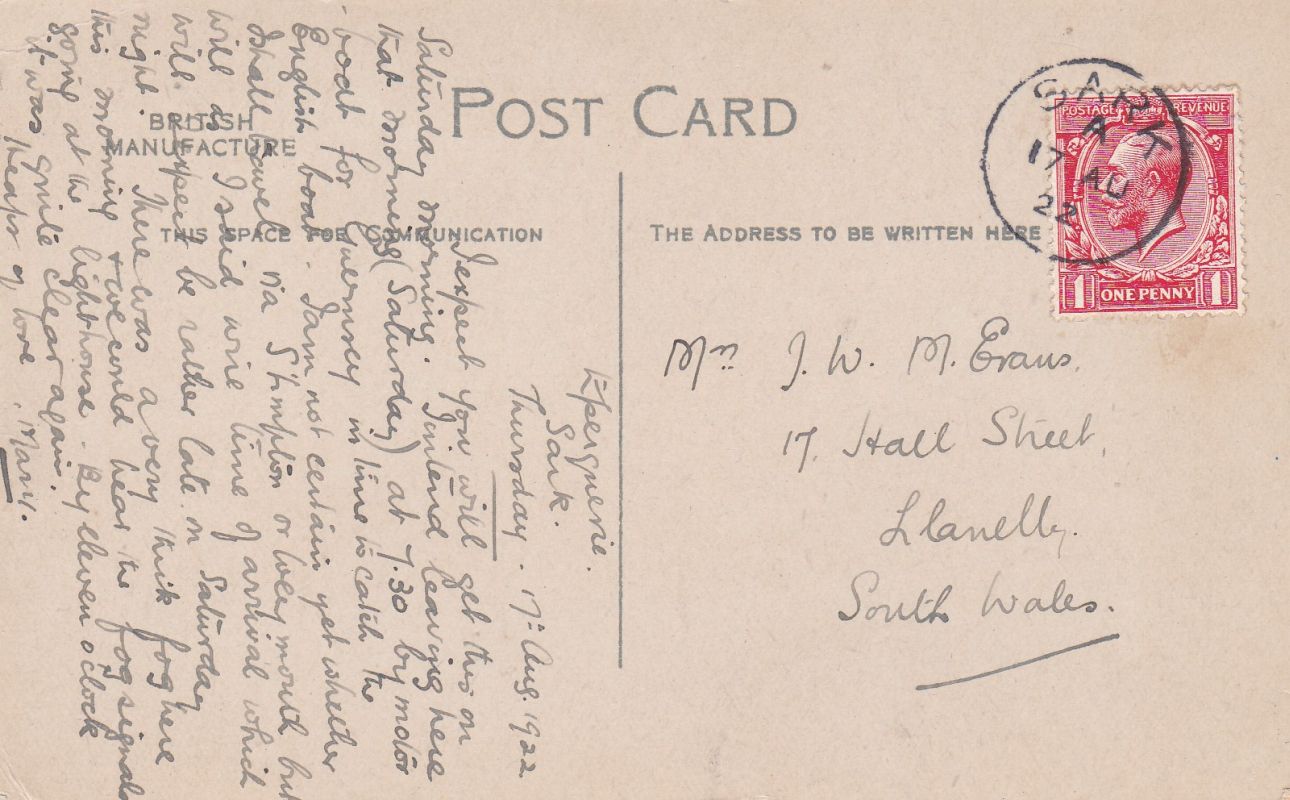 POST CARD
BRITISH
MANUFACTURE
THIS SPACE FOR COMMUNICATION
THE ADDRESS TO BE WRITTEN HERE
SARK
A
17 AU
22
POSTAGE REVENUE
1 ONE PENNY 1
Mrs J. W. M. Evans.
17, Hall Street,
Llanelly.
South Wales.
Epergnerie.
Sark.
Thursday. 17: Aug. 1922
I expect you will get this on
Saturday morning. I intend leaving here
that morning (Saturday) at 7.30 by motor
boat for Guernsey in time to catch the
English boat. I am not certain yet whether
I shall travel via S'hmpton or Weymouth but
will as I said wire time of arrival which
will I expect be rather late on Saturday
night. There was a very thick fog here
this morning & we could hear the fog signals
going at the lighthouse. By eleven o'clock
it was quite clear again.
Heaps of love, Mary.